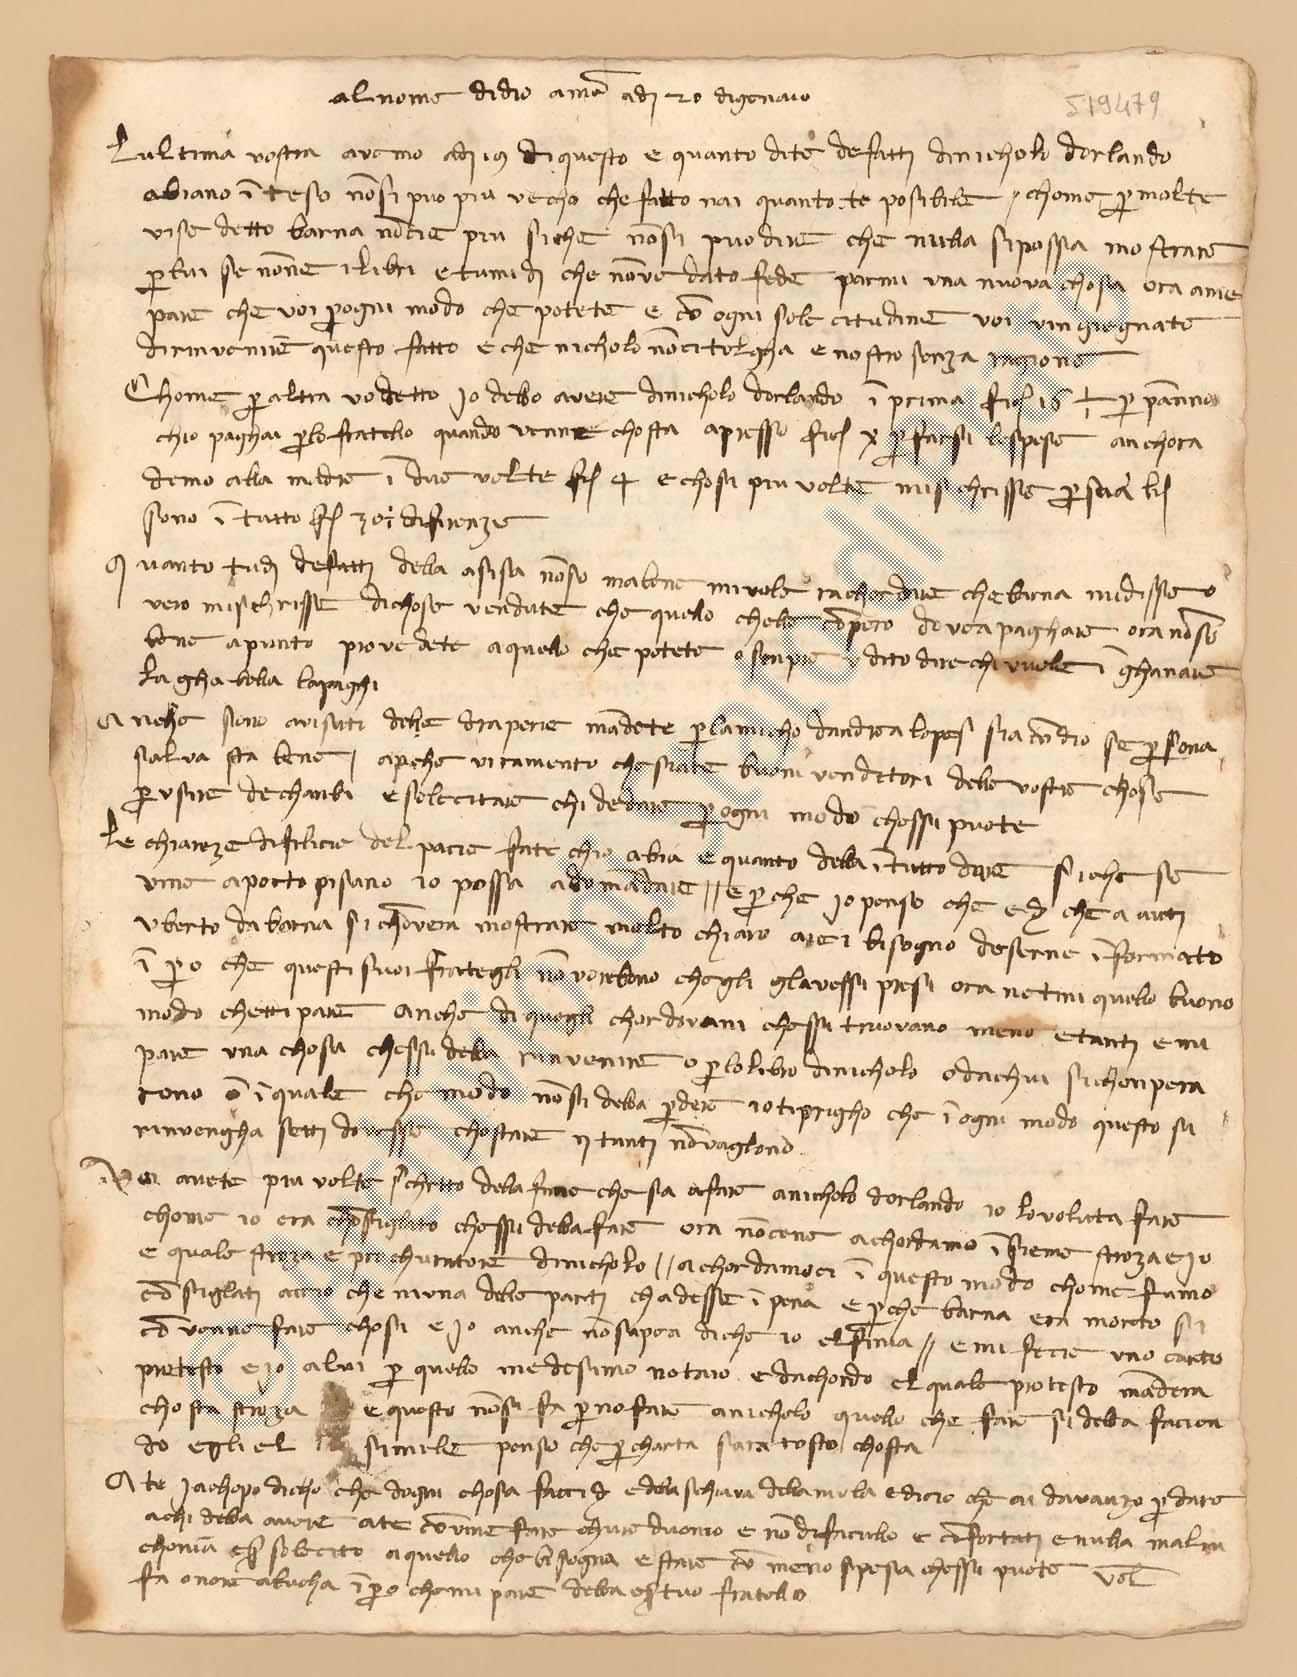 al nome didio amē adj 20 digenaio
519479
Lultima vostra avemo adj 19 di questo e quanto dite de fatti dinicholo dorlando
abiano īteso nōsi puo piu vecho che fatto nai quanto te posibile / chome p molte
vise detto barna nōcie piu siche nōsi puo dire che nulla sipossa mostrare
plui se nōne ilibri e tumidj che nōve dato fede parmi una nuova chosa ora ame
pare che voi p ogni modo che potete e cō ogni sole citudine voi vingiegnate
dirinvenire questo fatto e che nicholo nōcitolgha e nostro senza ragione
Chome p altra vo detto Jo debo avere dinicholo dorlando ī prima fior 15 p panno
chio paghai plo fratello quando venne chosta apresso fior x p farsi lespese anchora
demo alla madre ī due volte fi 4 e chosi piu volte mischrisse p sua
sono ī tutto fi difirenze
Quanto tudj defatti della asisa nōso ma bene mi vole rachordare che barna midisse o
vero mischrisse dichose vendute che quello chelle cōpero dovea paghare ora nōso
bene apunto provedete aquello che potete o senpre udito dire chi vuole īghanare
la ghabella la paghi
Anche sono avisati delle draperie mādate p lamicho dandrea lopes sia cōdio se p sona
salva sta bene / apche vi ramento che siate buoni venditori delle vostre chose
p usire dechanbi e solecitare chi de dare p ogni modo chessi puote
Le chiareze difilicie del pacie fate chio abia e quanto della ītutto dare siche se
vine aporto pisano io possa adomādare // e p che Jo penso che edj che a auti
uberto da barna si chōvera mostrare molto chiaro arei bisogno deserne īformato
īpo che questi suoi frategli nō vorebono chegli glavessi presi ora netini quello buono
modo chetti pare anche di quegli chordovani chessi truovano meno etanti e mi
pare una chosa chessi debba rinvenire o p lo libro dinicholo o dachui sichonpera
rono o ī quale che modo nōsi debba pdere io ti prigho che ī ogni modo questo si
rinvengha setti dovesse chostare ij tanti nō vaglono
Voi avete piu volte schritto dela fine che sa afare anicholo dorlando io lo voluta fare
chome io era chōsigliato chessi debba fare ora nōcene achordamo īsieme stroza ejo
e quale stroza e prochuratore dinicholo // achordamoci ī questo modo chome fumo
cōsiglati accio che niuna delle parti chadesse ī pena e pche barna era morto si
cōvenne fare chosi e Jo anche nōsapea diche io el fina // e mi fecie uno certo
protesto ejo alui p quello medesimo notaio e dachordo el quale protesto mādera
chosta stroza e questo nōsi fa p no fare anicholo quello che fare si debba facien
do egli el simile penso che p charta sara tosto chosta
A te Jachopo dicho che dogni chosa facci e dela schiava dela mula e dicio che ai davanzo p dare
achi debba avere ate cōvine fare chure duomo e nō difaciullo e cōfortati e nulla malin
chonia e solecito aquello che bisogna e stare cō meno spesa chessi puote vol
fa onore abucha īpo che mi pare debba esser tuo fratello